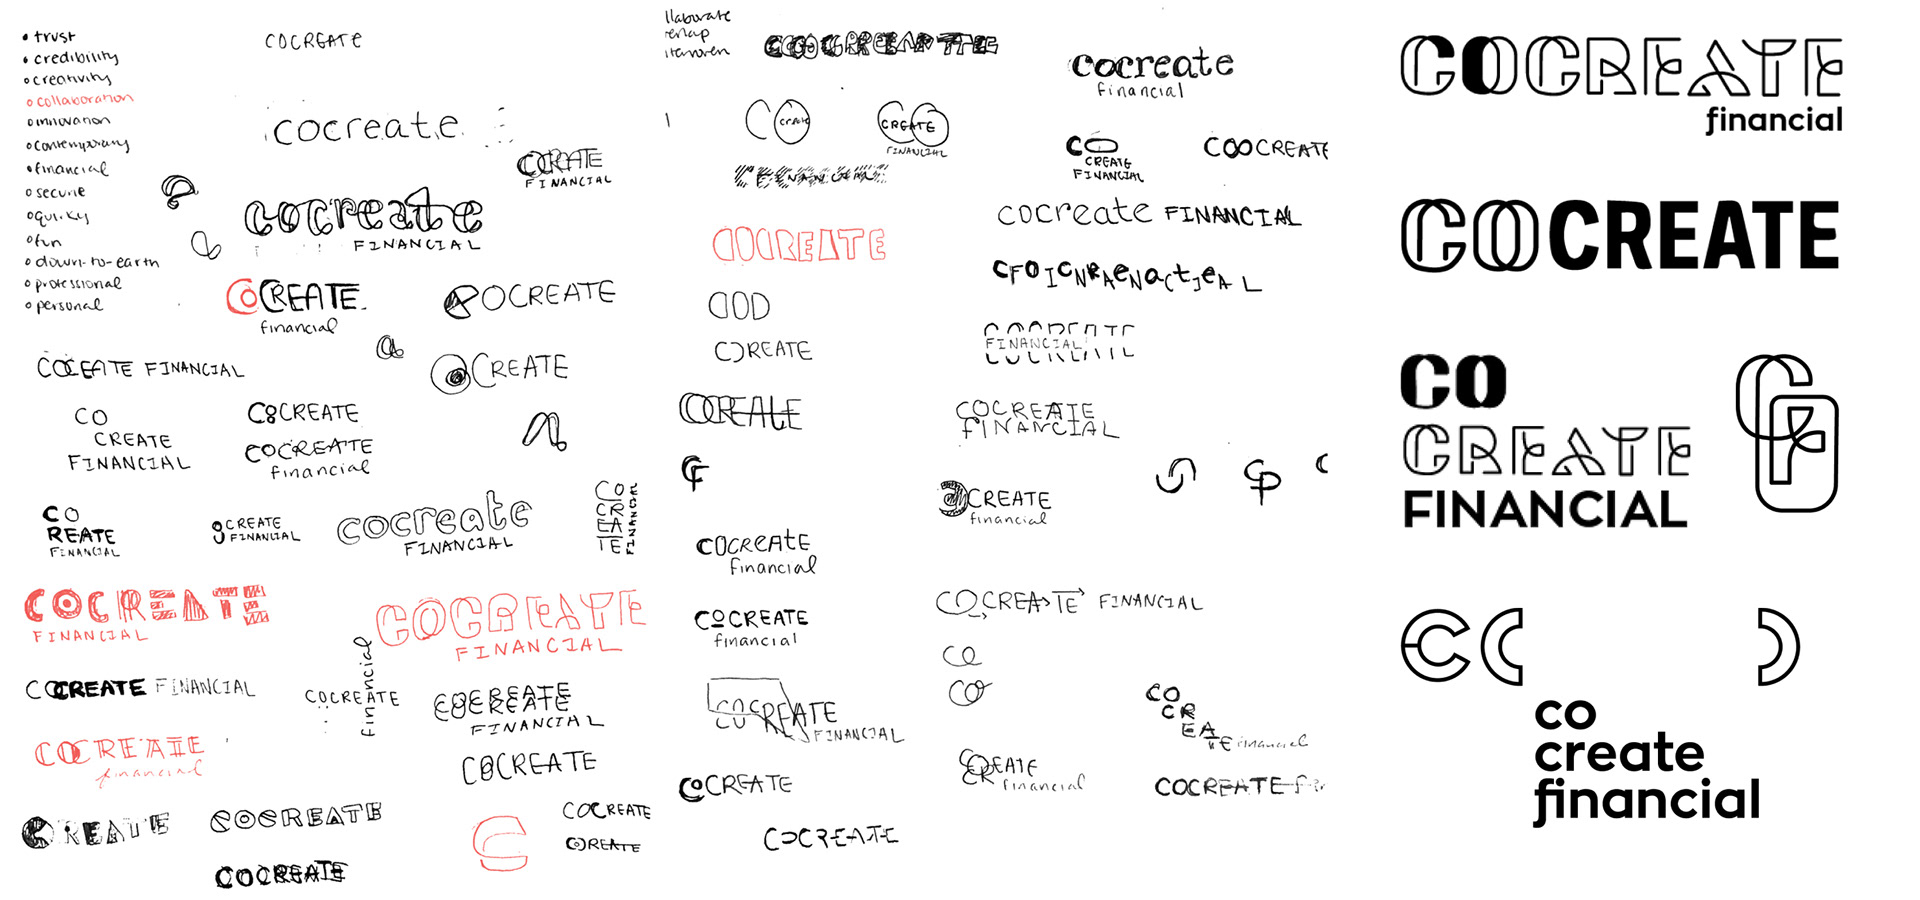 trust
credibility
creativity
collaboration
innovation
contemporary
financial
secure
quirky
fun
down-to-earth
professional
personal
COCREATE
cocreate
COCREATE
FINANCIAL
cocreate
FINANCIAL
COCREATE
financial
COCREATE
COCREATE FINANCIAL
CREATE
CO
CREATE
FINANCIAL
COCREATE
COCREATE
financial
CO
REATE
FINANCIAL
CREATE
FINANCIAL
cocreate
FINANCIAL
CO
CR
EA
TE
FINANCIAL
COCREATE
FINANCIAL
COCREATE
FINANCIAL
COCREATE FINANCIAL
COCREATE
financial
COCREATE
COCREATE
FINANCIAL
COCREATE
financial
COCREATE
CREATE
COCREATE
COCREATE
COCREATE
COCREATE
llaborate
COCREATE
CO
create
CREATE
FINANCIAL
COCREATE
COCREATE
COCREATE
financial
COCREATE
financial
COCREATE
FINANCIAL
COCREATE
COCREATE
cocreate
financial
CO
CREATE
FINANCIAL
COCREATE
cocreate FINANCIAL
CFOICNRAENACTJEAL
COCREATE
FINANCIAL
COCREATE
FINANCIAL
CREATE
financial
COCREATE FINANCIAL
CO
CO
CO
CR
EA
TE financial
CREATE
financial
COCREATE
COCREATE
financial
COCREATE
CO
CREATE
FINANCIAL
CF
co
create
financial